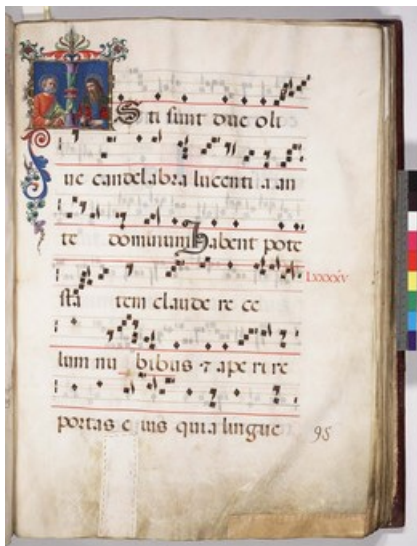 Sti sunt due oli
ue candelabra lucenti a an
te dominum Habent pote
LXXXXV
sta tem claude re ce
lum nu bibus ⁊ ape ri re
portas e ius quia lingue
95